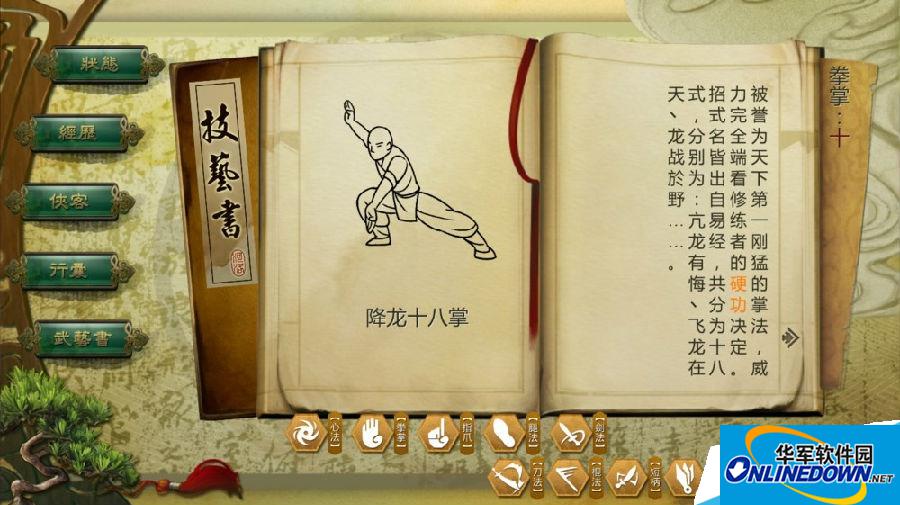 狀態
經歷
俠客
行囊
武藝書
技藝書
降龙十八掌
拳掌：十
被誉为天下第一刚猛的掌法，威
力完全端看修练者的硬功决定。
招式名皆出自易经，共分为十八
式，分别为：亢龙有悔、飞龙在
天、龙战於野……。
心法
拳掌
指爪
腿法
剑法
刀法
棍法
短柄
华军软件园
ONLINEDOWN.NET